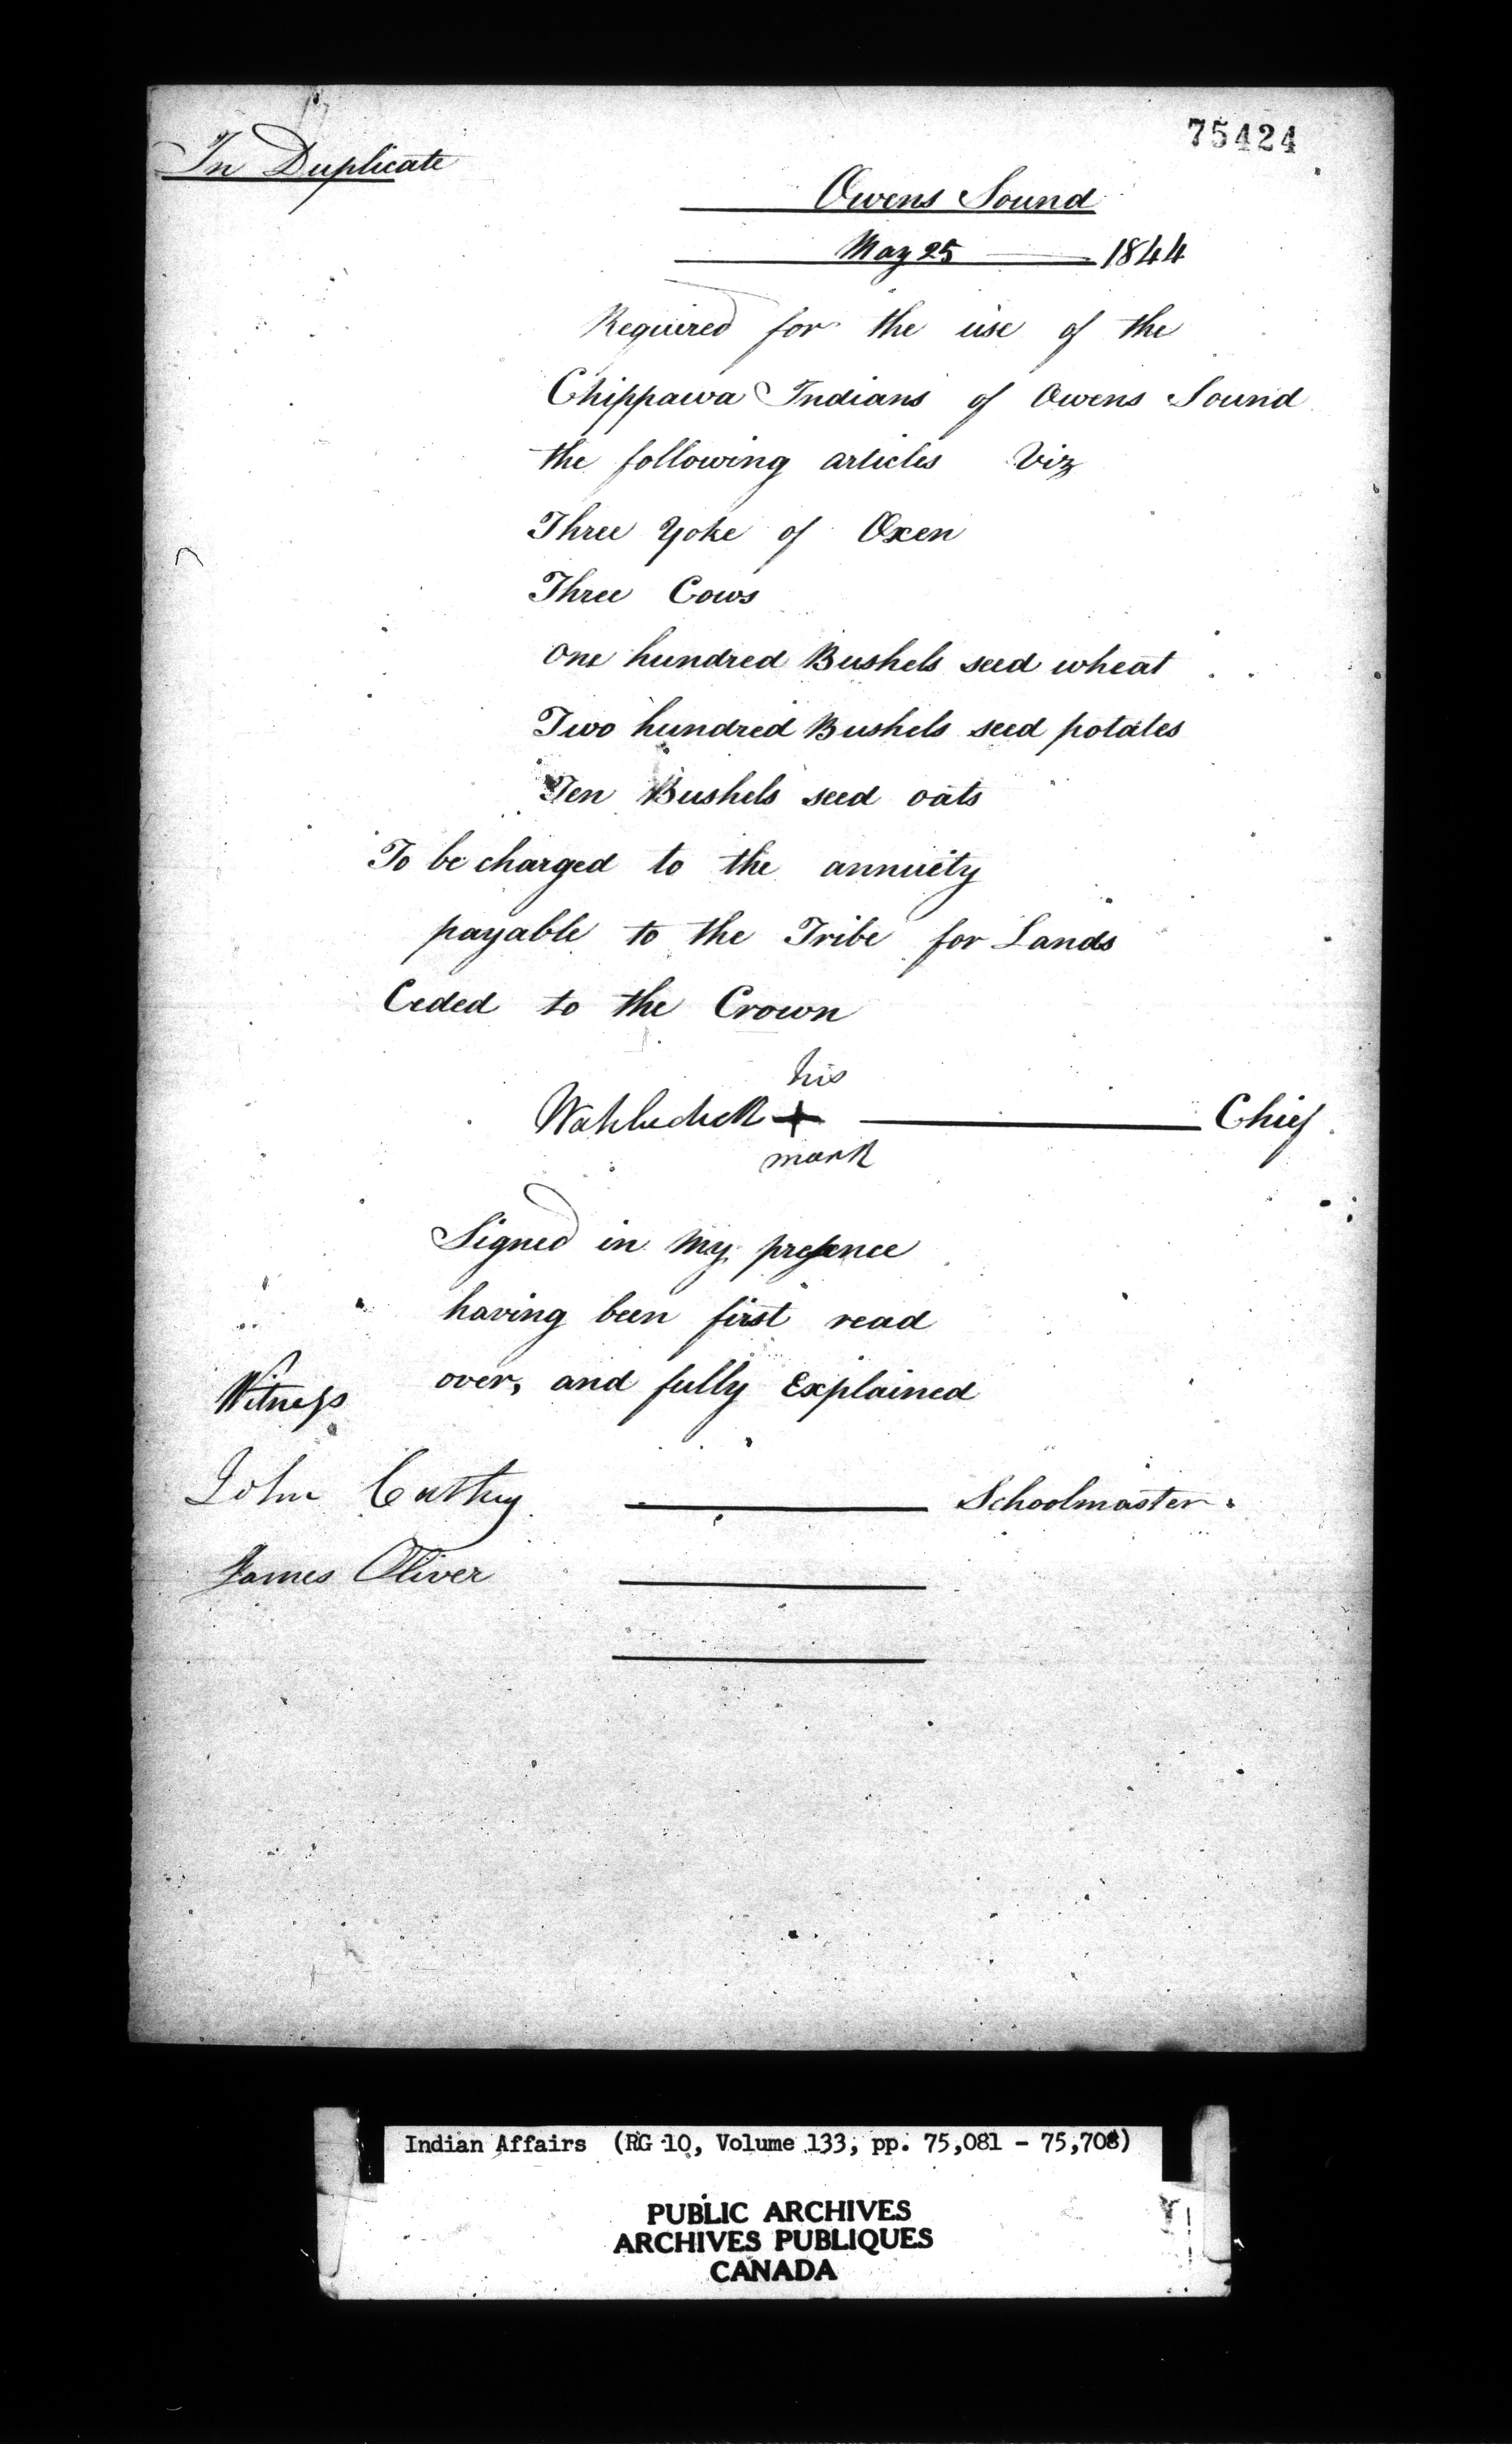 75424
In Duplicate
Owens Sound
May 25 1844
Required for the use of the
Chippawa Indians of Owens Sound
the following articles Viz
Three Yoke of Oxen
Three Cows
One hundred Bushels seed wheat
Two hundred Bushels seed potates
Ten Bushels seed oats
To be charged to the annuity
payable to the Tribe for Lands
Ceded to the Crown
his
+ Chief
mark
Signed in my presence
having been first read
over, and fully Explained
Witness
John Schoolmaster
James Oliver
Indian Affairs (RG 10, Volume 133, pp. 75,081 - 75,708)
PUBLIC ARCHIVES
ARCHIVES PUBLIQUES
CANADA